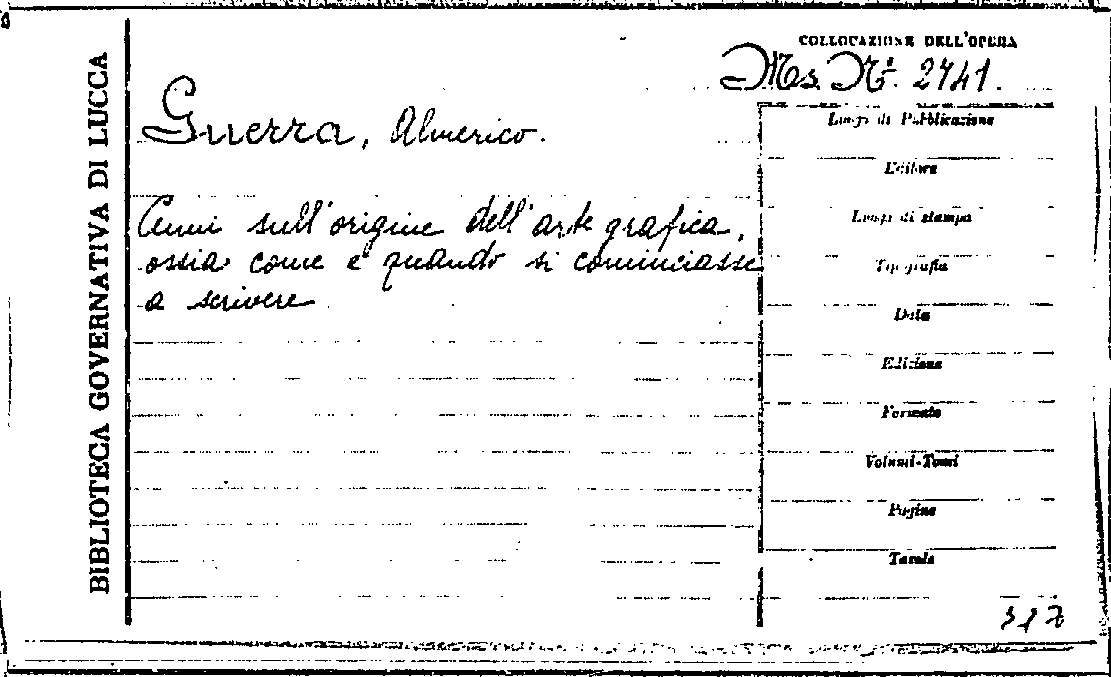 BIBLIOTECA GOVERNATIVA DI LUCCA
COLLOCAZIONE DELL'OPERA
Ms. Nº. 2741.
Guerra, Almerico.
Cenni sull'origine dell'arte grafica,
ossia come e quando si cominciasse
a scrivere
Luogo di Pubblicazione
Editore
Luogo di stampa
Tipografia
Data
Edizione
Formato
Volumi-Tomi
Pagine
Tavole
317